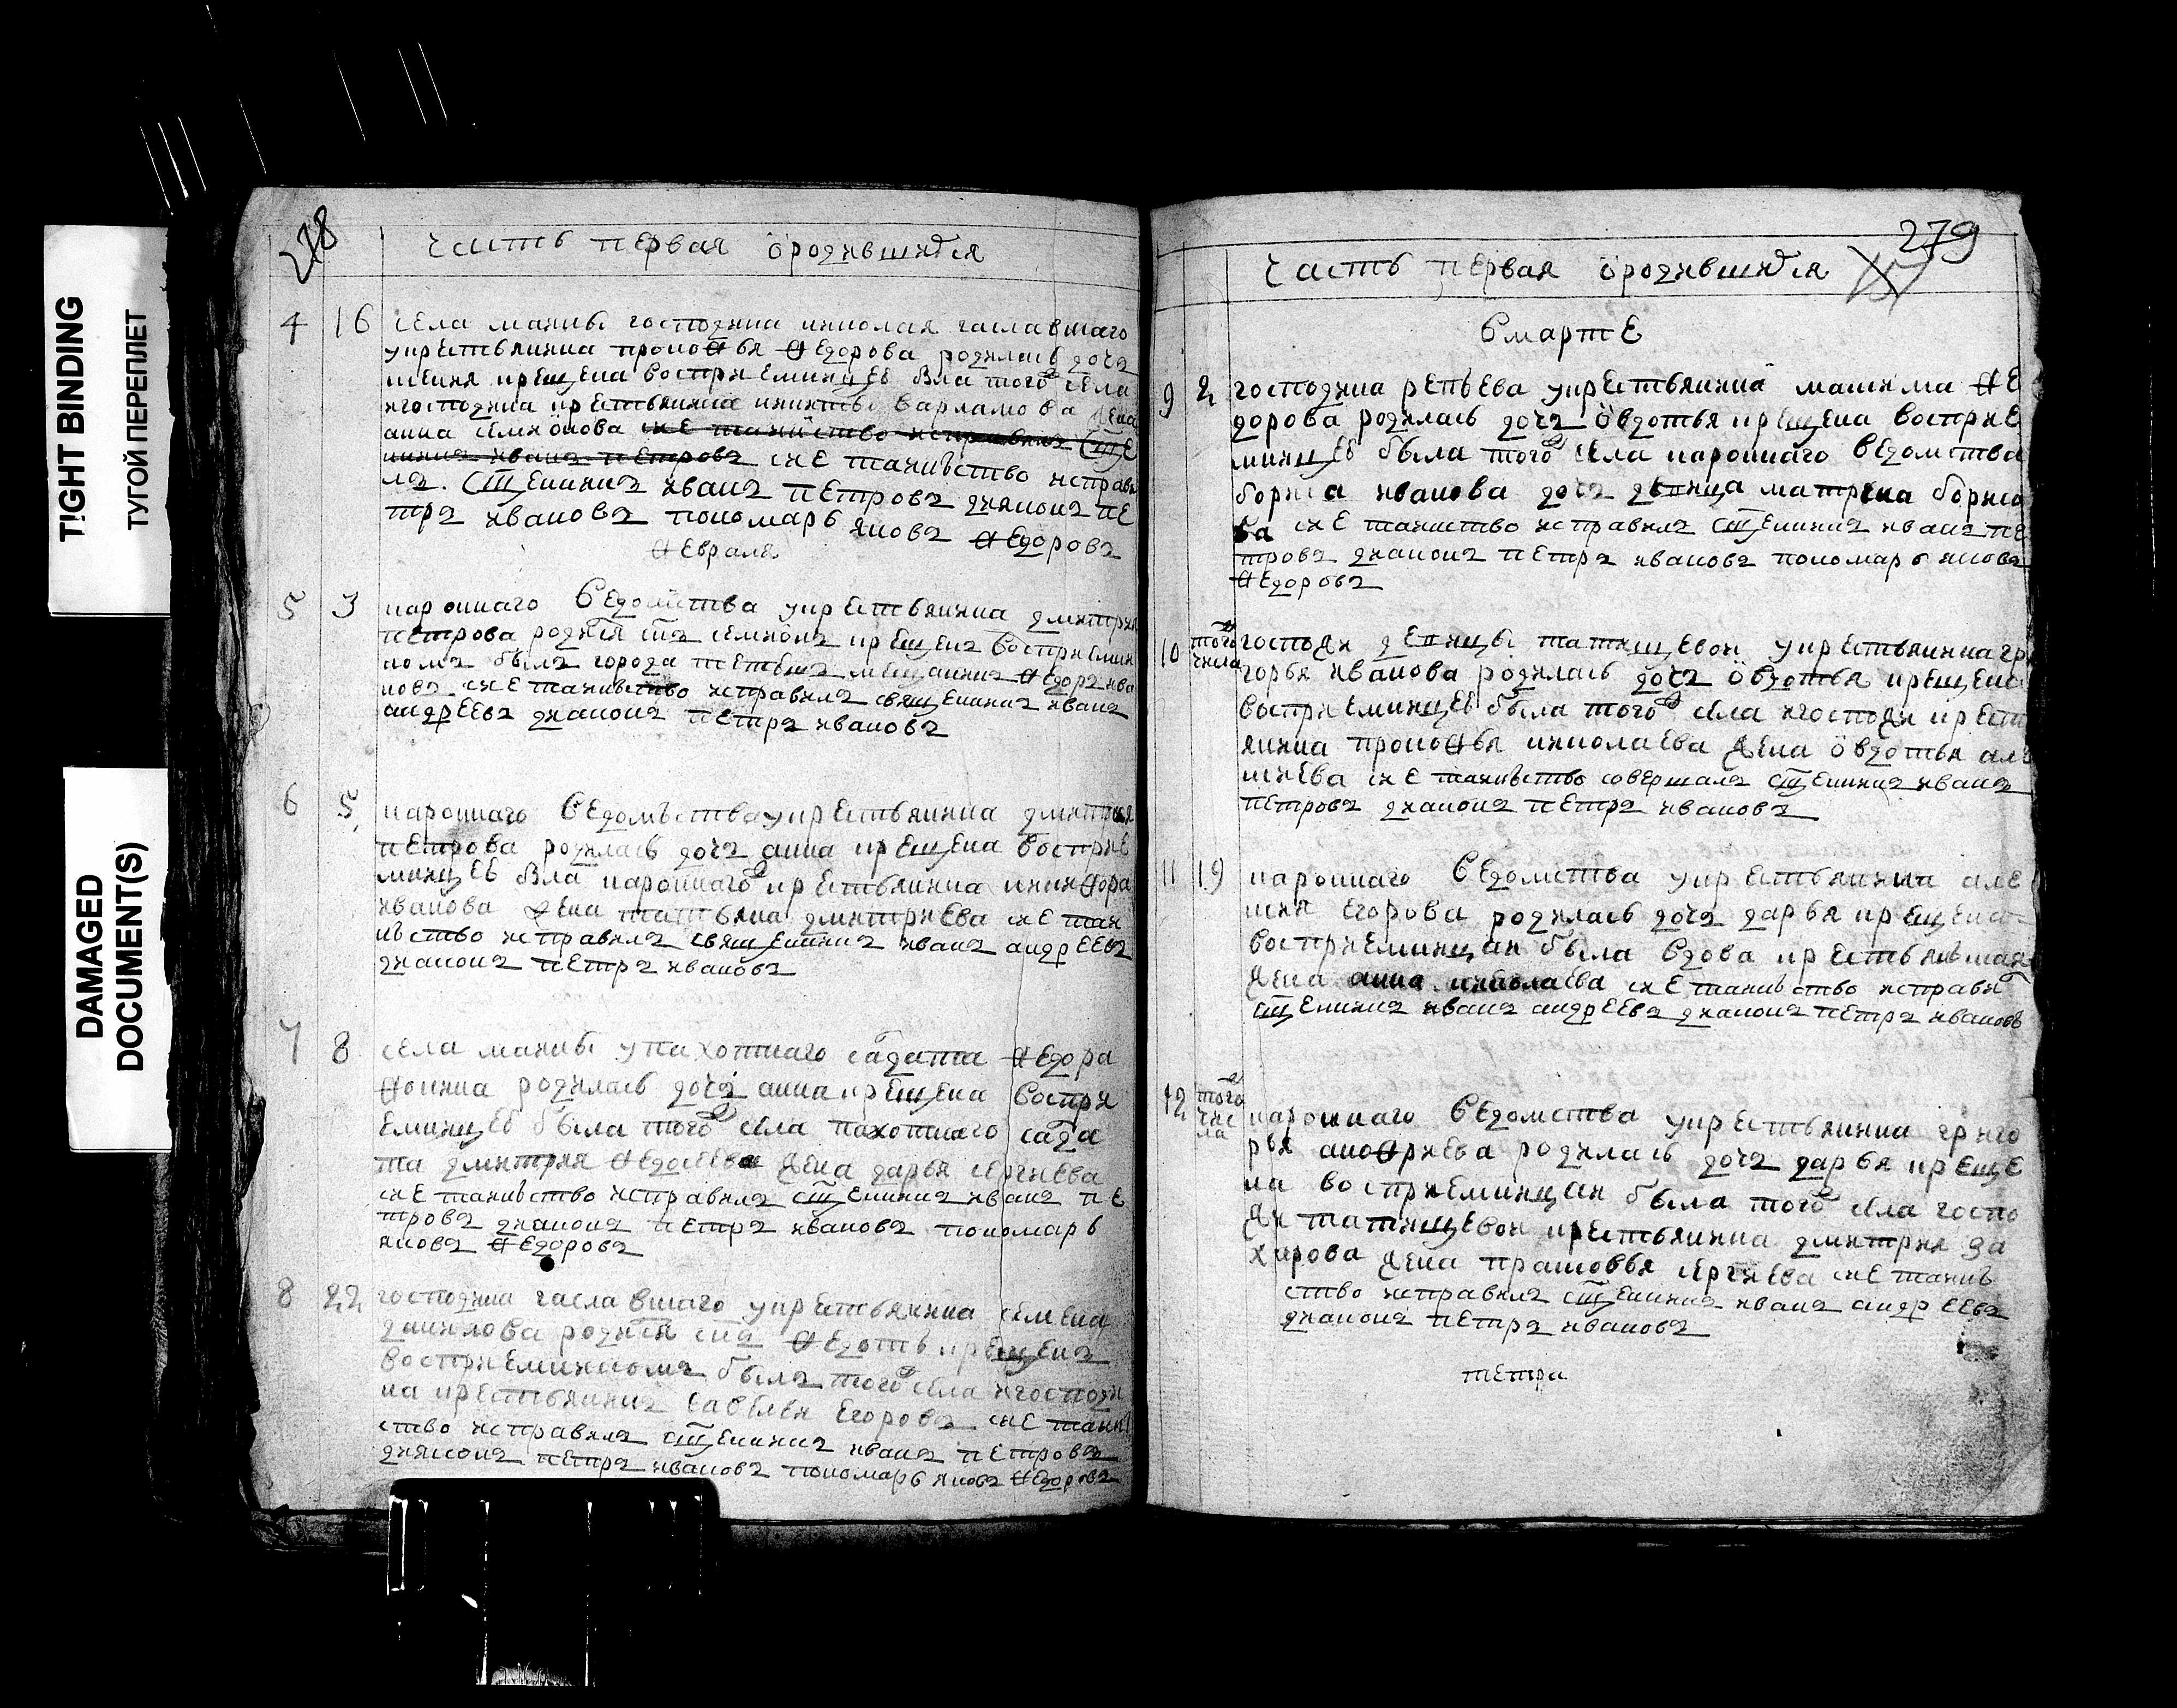 TIGHT BINDING
ТУГОЙ ПЕРЕПЛЕТ
DAMAGED
DOCUMENT(S)
278
часть первая ородившихся
4 16 села господина николая гаславшаго
укрестьянина прокофья федорова родилась дочь
ксения крещена восприемницею была того села
игосподина крестьянина никиты варламова жена
анна семионова сие таинство исправлял свще
нник иван петров сие таинъство исправи
лъ. Сщенникъ иванъ петровъ дияконъ пе
тръ ивановъ пономарь яковъ федоровъ
февраля
5 3 кароннаго ведомства укрестьянина дмитрия
петрова родился снъ семионъ крещенъ восприемни
комъ былъ города мещанинъ федоръ ива
новъ сие таинъство исправилъ священникъ иванъ
андреевъ дияконъ петръ ивановъ
6 5 кароннаго ведомъства укрестьянина дмитрия
петрова родилась дочь анна крещена восприе
мницею была кароннаго крестьянина никифора
иванова жена татьяна дмитриева сие таи
нъство исправилъ священникъ иванъ андреевъ
дияконъ петръ ивановъ
7 8 села упахотнаго садата федора
фокина родилась дочь анна крещена воспри
емницею была того села пахотнаго сада
та дмитрия федосеева жена дарья сергиева
сие таинъство исправилъ сщенникъ иванъ пе
тровъ дияконъ петръ ивановъ пономарь
яковъ федоровъ
8 22 господина гаславшаго укрестьянина семена
данилова родился снъ федотъ крещенъ
восприемникомъ былъ того села игосподи
на крестьянинъ савелья егоровъ сие таинъ
ство исправилъ сщенникъ иванъ петровъ
дияконъ петръ ивановъ пономарь яковъ федоровъ
279
часть первая ородившихся
Вмарте
9 2 господина репьева укрестьянина максима фе
дорова родилась дочь овдотья крещена восприе
мницею была того села кароннаго ведомства
бориса иванова дочь девица матрена борисо
ва сие таинство исправилъ сщенникъ иванъ пе
тровъ дияконъ петръ ивановъ пономарь яковъ
федоровъ
10 того числа госпожи девицы татищевой укрестьянина гри
горья иванова родилась дочь овдотья крещена
восприемницею была того села игоспожи крест
янина прокофья николаева жена овдотья але
ксиева сие таинъство совершалъ сщенникъ иванъ
петровъ дияконъ петръ ивановъ
11 19 кароннаго ведомства укрестьянина але
ксия егорова родилась дочь дарья крещена
восприемницей была вдова крестьянъская
жена анна николаева сие таинъство исправи
сщенникъ иванъ андреевъ дияконъ петръ ивановъ
12 того числа кароннаго ведомства укрестьянина григо
рья анофриева родилась дочь дарья креще
на восприемницей была того села госпо
жи татищевой крестьянина дмитрия за
харова жена прасковья сергиева сие таинъ
ство исправилъ сщенникъ иванъ андреевъ
дияконъ петръ ивановъ
петра